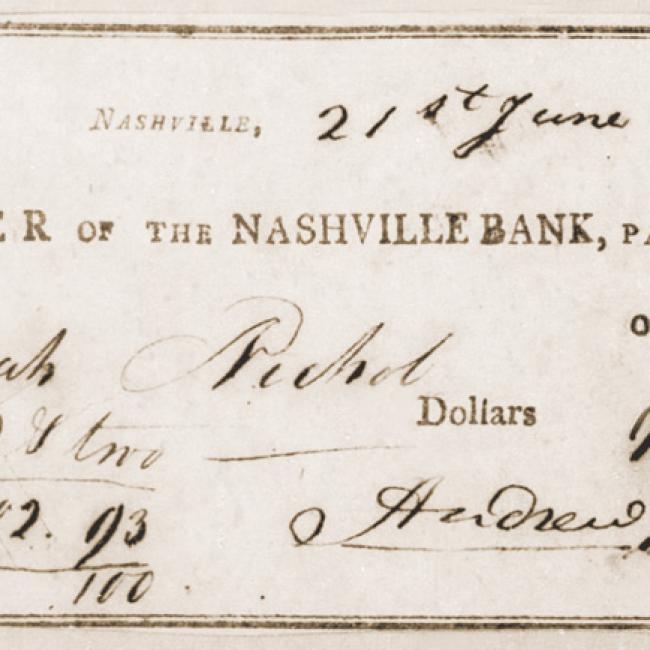 NASHVILLE, 21st June
ER OF THE NASHVILLE BANK, PA
o
ah Nichol
& two Dollars
2. 93
100
Andrew